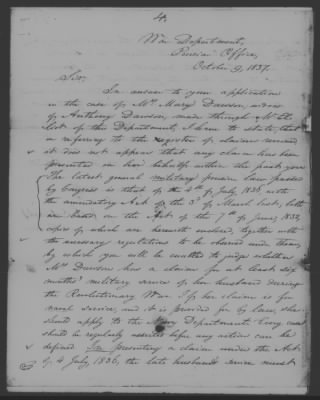 4.
War Department,
Pension Office,
October 9, 1837.
Sir.
In answer to your application
in the case of Mrs. Mary Dawson, widow
of Anthony Dawson, made through
of this Department, I have to state, that
on referring to the register of claims received
it does not appear that any claim has been
presented in her behalf within the past year.
The latest general military pension law passed
by Congress is that of the 4th of July 1836, with
the amendatory Act of the 3d of March last, both
are based on the Act of the 7th of June, 1832,
copies of which are herewith enclosed, together with
the necessary regulations to be observed under them,
by which you will be enabled to judge whether
Mrs. Dawson has a claim for at least six
months' military service of her husband during
the Revolutionary War. If her claim is for
naval service, and it is provided for by law, she
should apply to the Navy Department. Every case
should be regularly asserted before any action can be
had. In presenting a claim under the Act
of 4 July, 1836, the late husband's service must